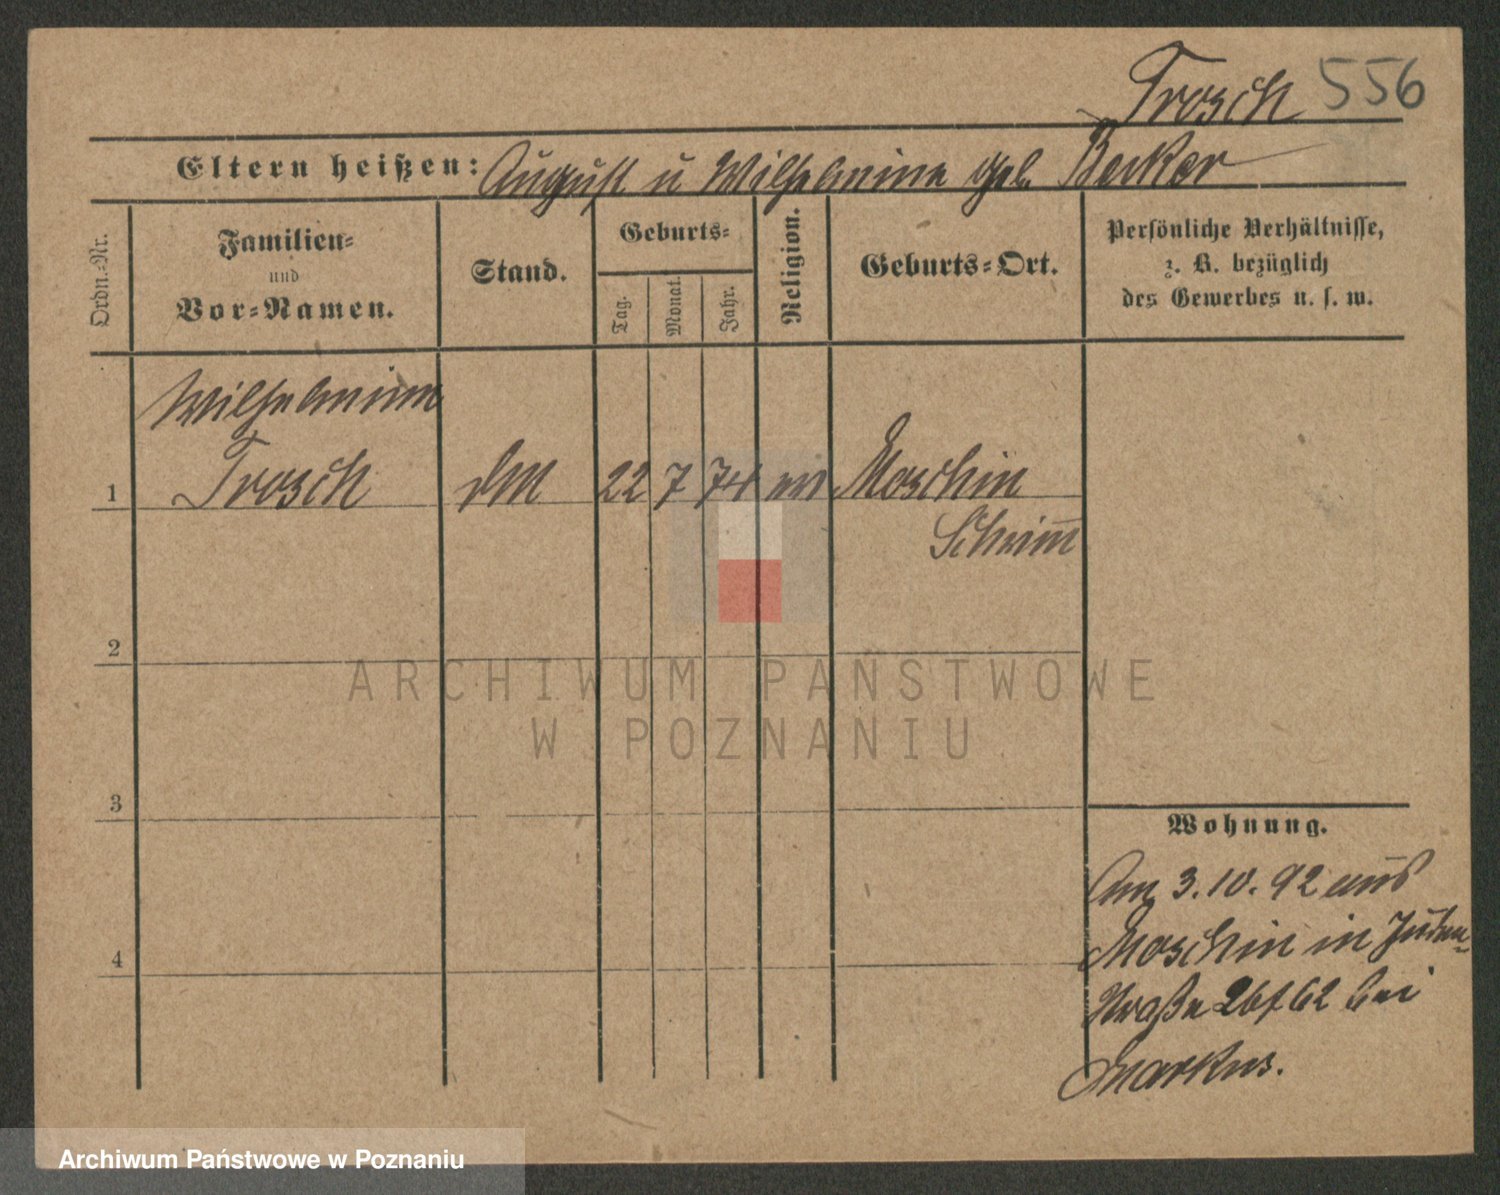 Trosch 556
Eltern heißen: August u Wilhelmine geb. Becker
Ordn.-Nr.
Familien-
und
Vor-Namen.
Stand.
Geburts-
Tag.
Monat.
Jahr.
Religion.
Geburts-Ort.
Persönliche Verhältnisse,
z. B. bezüglich
des Gewerbes u. s. w.
Wilhelmine
1 Trosch 22 7 74 Moschin
Schrim̄
2
3
4
Wohnung.
Am 3.10.92 aus
Moschin in Juden-
Straße bei
Markus.
ARCHIWUM PAŃSTWOWE
W POZNANIU
Archiwum Państwowe w Poznaniu